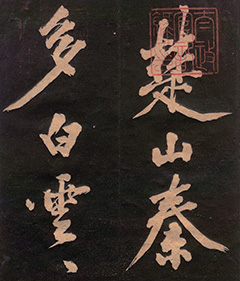 楚山秦
多白雲、